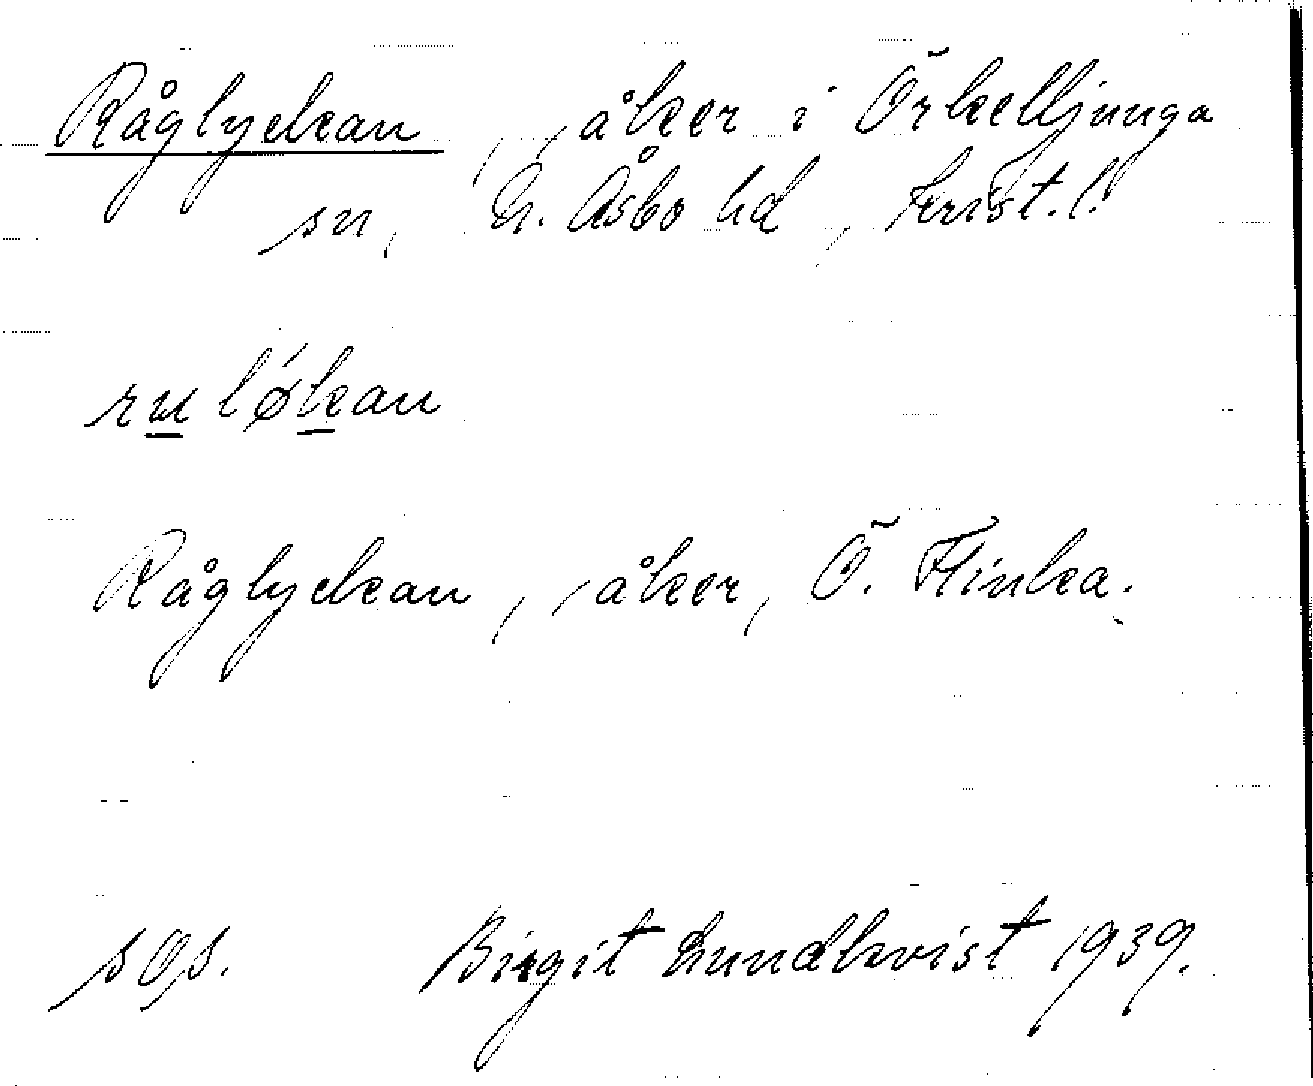 Råglyckan, åker i Örkelljunga
sn, N. Åsbo hd, Krist. l.
ru løkan
Råglyckan, åker, Ö. Flinka.
Birgit Lundkvist 1939.